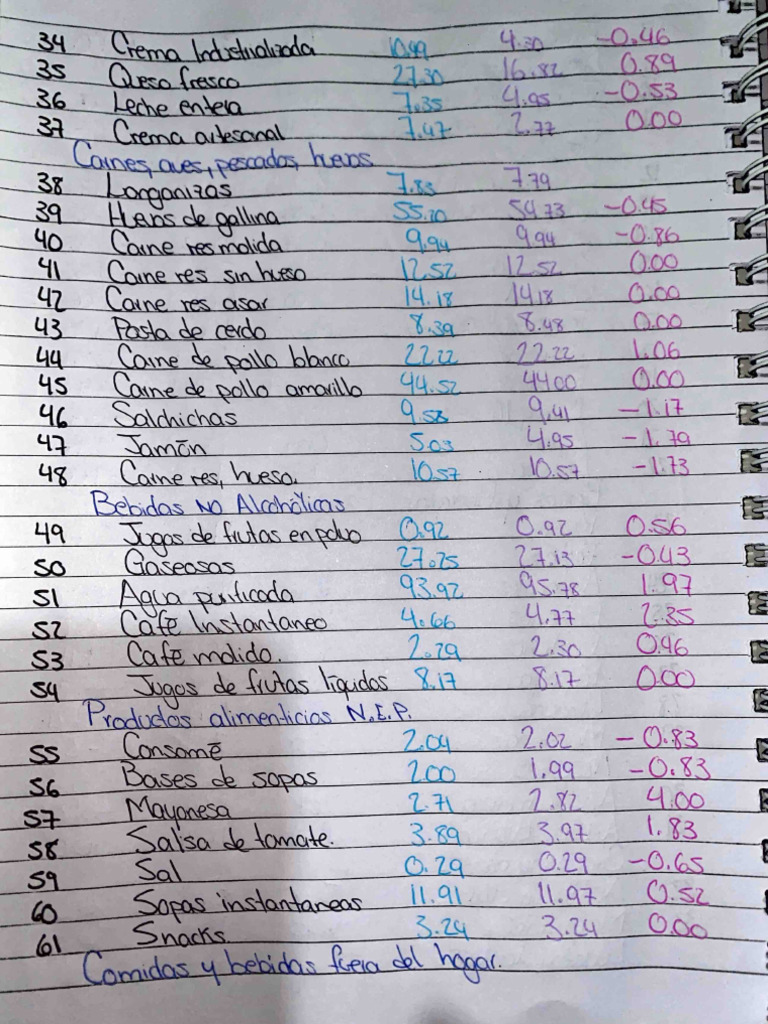 34 Crema Industrializada 10.49 4.30 -0.46
35 Queso fresco 27.30 16.82 0.89
36 Leche entera 7.35 4.95 -0.53
37 Crema artesanal 7.47 2.77 0.00
Carnes, aves, pescados, huevos
38 Longanizas 7.83 7.79
39 Huevos de gallina 55.20 54.73 -0.45
40 Carne res molida 9.94 9.94 -0.86
41 Carne res sin hueso 12.52 12.52 0.00
42 Carne res asar 14.18 14.18 0.00
43 Posta de cerdo 8.39 8.48 0.00
44 Carne de pollo blanco 22.22 22.22 1.06
45 Carne de pollo amarillo 44.52 44.00 0.00
46 Salchichas 9.53 9.41 -1.17
47 Jamón 5.03 4.95 -1.79
48 Carne res, hueso. 10.57 10.57 -1.73
Bebidas No Alcohólicas
49 Jugos de frutas en polvo 0.92 0.92 0.56
50 Gaseosas 27.25 27.13 -0.43
51 Agua purificada 93.92 95.78 1.97
52 Café Instantaneo 4.66 4.77 2.35
53 Café molido. 2.29 2.30 0.46
54 Jugos de frutas líquidos 8.17 8.17 0.00
Productos alimenticios N.E.P.
55 Consomé 2.04 2.02 -0.83
56 Bases de sopas 2.00 1.99 -0.83
57 Mayonesa 2.71 2.82 4.00
58 Salsa de tomate. 3.89 3.97 1.83
59 Sal 0.29 0.29 -0.65
60 Sopas instantaneas 11.91 11.97 0.52
61 Snacks. 3.24 3.24 0.00
Comidas y bebidas fuera del hogar.